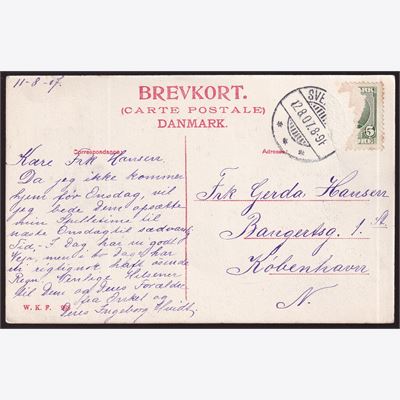 11-8-07.
BREVKORT.
(CARTE POSTALE)
DANMARK.
SVE
12.8.07.8-9F
5
ØRE
Correspondance
Adresse
Kære Frk Hansen.
Da jeg ikke kommer
hjem før Onsdag, vil
jeg bede Dem opsætte
min Spilletime til
næste Onsdag til sædvanl.
Tid. - I Dag har vi godt
Vejr, men i to Dage har
vi rigtignok haft øsende
Regn. Venlige Hilsener
til Dem og Deres Forældre
fra Onkel og
Deres Ingeborg
Frk. Gerda Hansen
Bangertsg. 1. St.
København
N.
W. K. F.